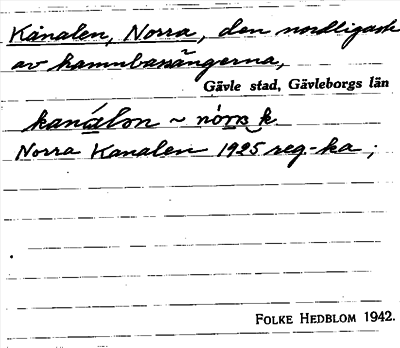 Kanalen, Norra, den nordligaste
av hamnbassängerna,
Gävle stad, Gävleborgs län
kanálən ~ nór̄a k
Norra Kanalen 1925 reg.-ka;
FOLKE HEDBLOM 1942.